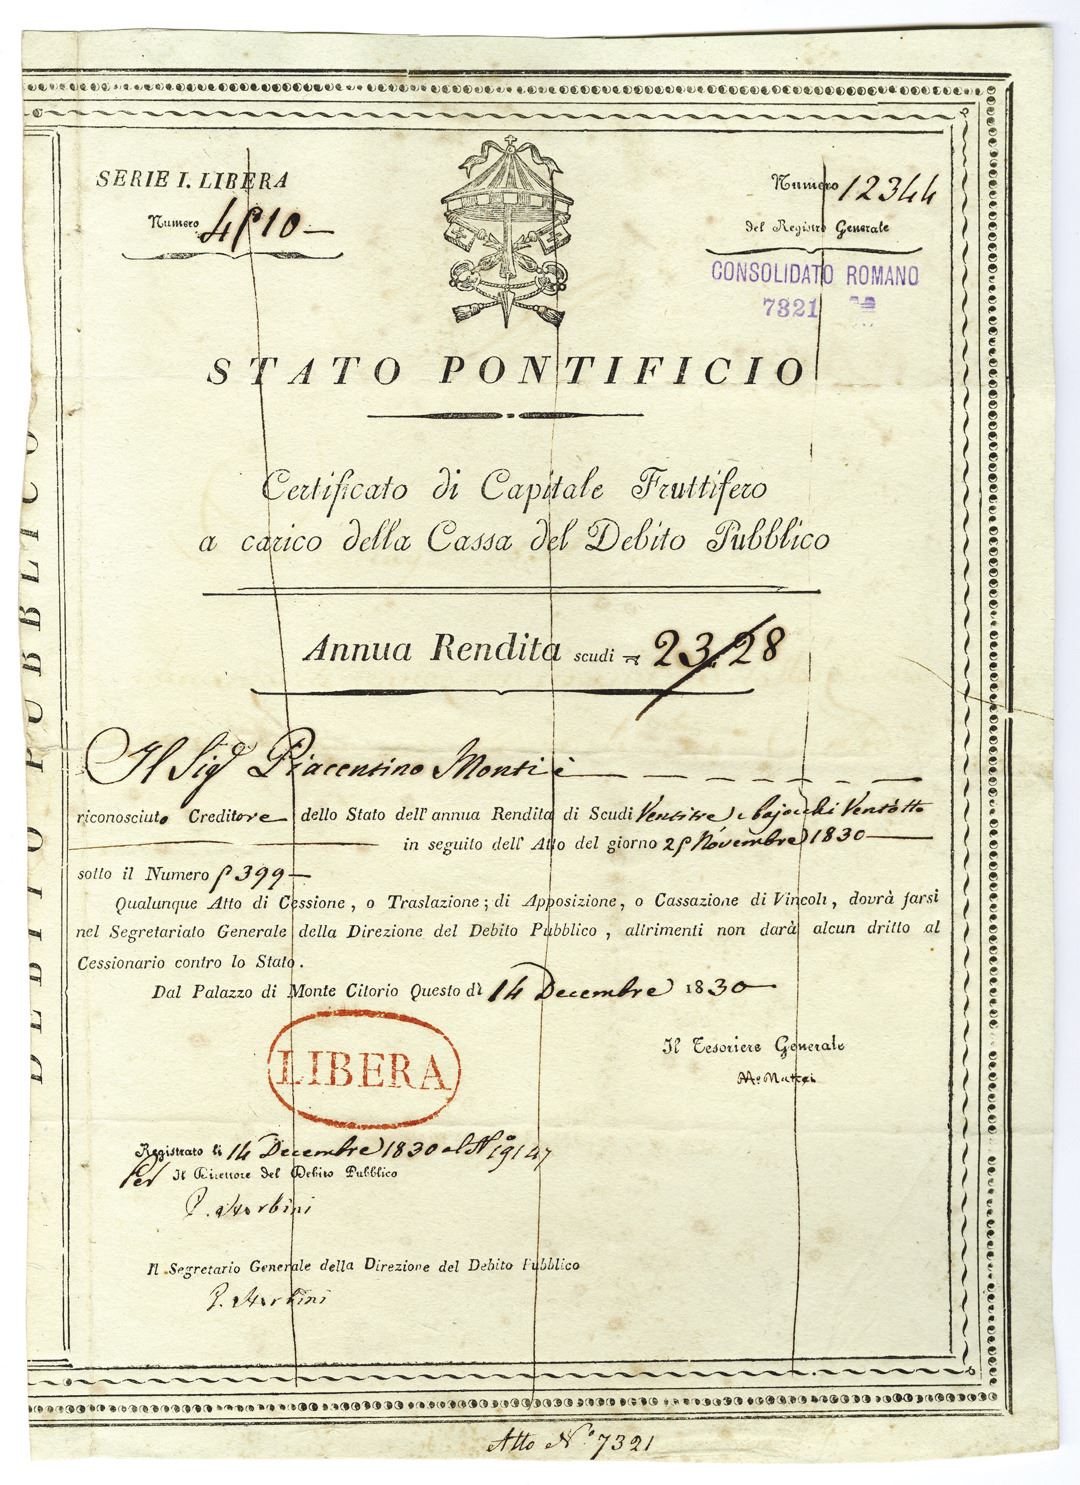 SERIE I. LIBERA
Numero 4510
Numero 12344
del Registro Generale
CONSOLIDATO ROMANO
7321
STATO PONTIFICIO
DEBITO PUBBLICO
Certificato di Capitale Fruttifero
a carico della Cassa del Debito Pubblico
Annua Rendita scudi 23.28
Il Sigr Piacentino Monti è
riconosciuto Creditore dello Stato dell'annua Rendita di Scudi Ventitre e bajocchi Ventotto
in seguito dell' Atto del giorno 25 Novembre 1830
sotto il Numero 5399
Qualunque Atto di Cessione, o Traslazione; di Apposizione, o Cassazione di Vincoli, dovrà farsi
nel Segretariato Generale della Direzione del Debito Pubblico, altrimenti non darà alcun dritto al
Cessionario contro lo Stato.
Dal Palazzo di Monte Citorio Questo dì 14 Decembre 1830
LIBERA
Il Tesoriere Generale
M. Mattei
Registrato li 14 Decembre 1830 al No 19147
Per Il Direttore del Debito Pubblico
Il Segretario Generale della Direzione del Debito Pubblico
Atto No. 7321